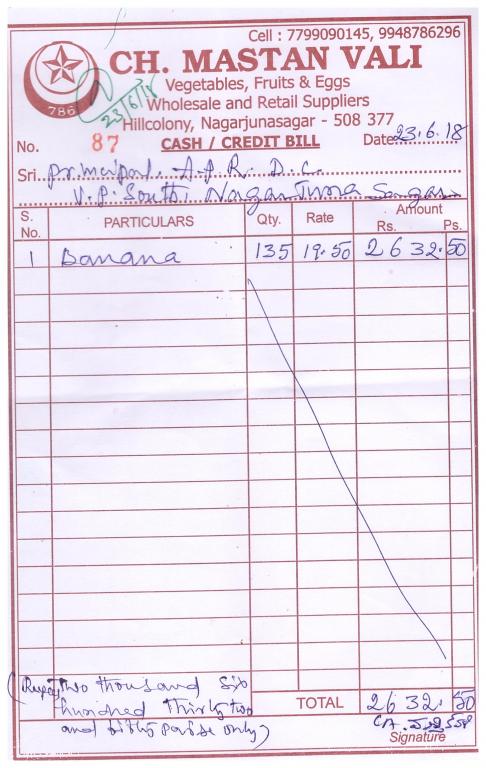 Cell : 7799090145, 9948786296
CH. MASTAN VALI
786
Vegetables, Fruits & Eggs
23/6/18
Wholesale and Retail Suppliers
Hillcolony, Nagarjunasagar - 508 377
No. 87 CASH / CREDIT BILL Date 23.6.18
Sri. principal, A.P.R.D.C.
V.P. South, Nagarjuna Sagar
S. No. PARTICULARS Qty. Rate Amount Rs. Ps.
1 Banana 135 19.50 2632.50
(Rupees two thousand six
hundred thirty two
and fifty paise only)
TOTAL 2632.50
Signature